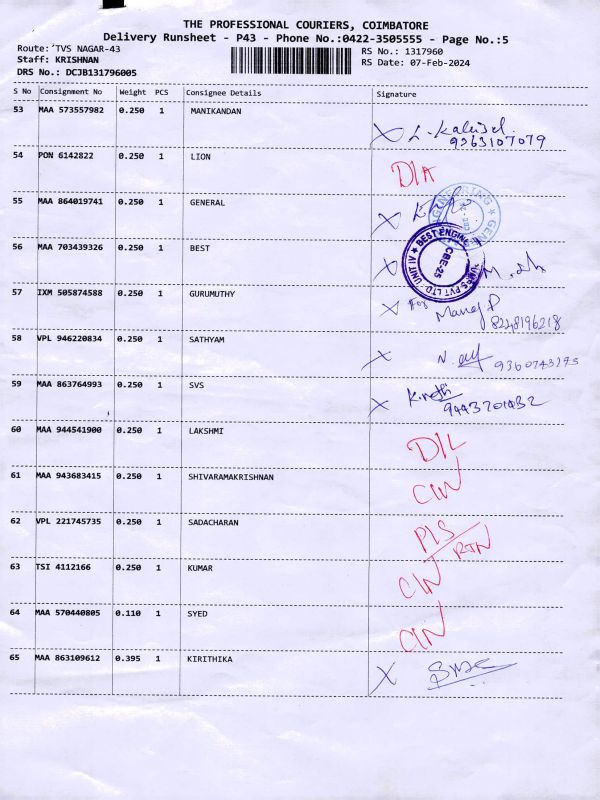 THE PROFESSIONAL COURIERS, COIMBATORE
Delivery Runsheet - P43 - Phone No.:0422-3505555 - Page No.:5
Route: TVS NAGAR-43 RS No.: 1317960
Staff: KRISHNAN RS Date: 07-Feb-2024
DRS No.: DCJB131796005
S No Consignment No Weight PCS Consignee Details Signature
53 MAA 573557982 0.250 1 MANIKANDAN
9363107079
54 PON 6142822 0.250 1 LION
55 MAA 864019741 0.250 1 GENERAL
56 MAA 703439326 0.250 1 BEST
BEST ENGINE PVT LTD. UNIT IV
CBE-25
57 IXM 505874588 0.250 1 GURUMUTHY
For Manoj P
8248196218
58 VPL 946220834 0.250 1 SATHYAM
9360743295
59 MAA 863764993 0.250 1 SVS
9443201432
60 MAA 944541900 0.250 1 LAKSHMI
D/L
61 MAA 943683415 0.250 1 SHIVARAMAKRISHNAN
CIN
62 VPL 221745735 0.250 1 SADACHARAN
PIS/RTN
63 TSI 4112166 0.250 1 KUMAR
CIN
64 MAA 570440805 0.110 1 SYED
CIN
65 MAA 863109612 0.395 1 KIRITHIKA